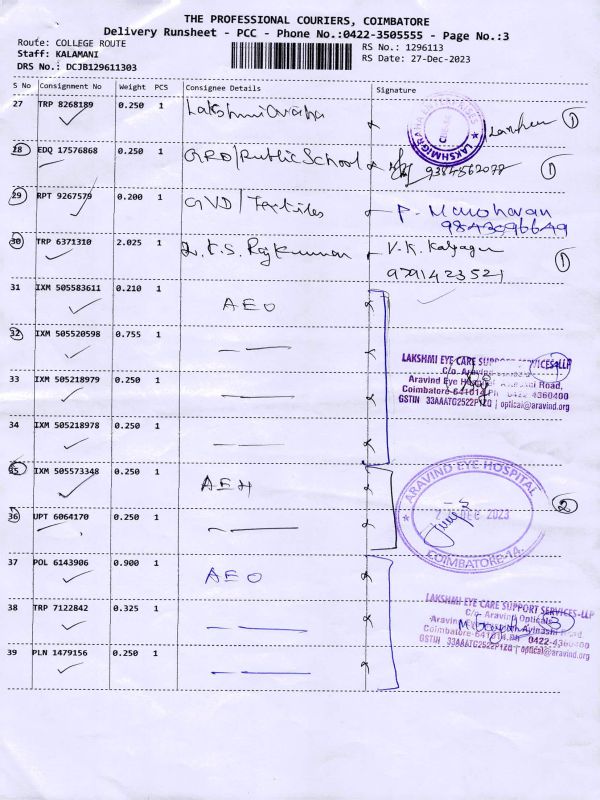 THE PROFESSIONAL COURIERS, COIMBATORE
Delivery Runsheet - PCC - Phone No.:0422-3505555 - Page No.:3
Route: COLLEGE ROUTE
Staff: KALAMANI
DRS No.: DCJB129611303
RS No.: 1296113
RS Date: 27-Dec-2023
S No Consignment No Weight PCS Consignee Details Signature
27 TRP 8268189 0.250 1 ①
28 EDQ 17576868 0.250 1 GRD/Public School 9384562078 ①
29 RPT 9267579 0.200 1 GVD/Textiles P. Manoharan
9843096649
30 TRP 6371310 2.025 1 Rajkumar V.K. ①
9791423521
31 IXM 505583611 0.210 1 AEO
32 IXM 505520598 0.755 1 — —
LAKSHMI EYE CARE SUPPORT SERVICES-LLP
C/o. Aravind
33 IXM 505218979 0.250 1 — —
Aravind Eye Hospital Avinashi Road,
Coimbatore-641014.PH 0422 4360400
GSTIN 33AAATC2522P1ZQ | optical@aravind.org
34 IXM 505218978 0.250 1 — —
35 IXM 505573348 0.250 1 AEH
ARAVIND EYE HOSPITAL
2023
COIMBATORE-14.
②
36 UPT 6064170 0.250 1 — —
37 POL 6143906 0.900 1 AEO
38 TRP 7122842 0.325 1 — —
LAKSHMI EYE CARE SUPPORT SERVICES-LLP
C/o. Aravind Opticals
Aravind Avinashi Road
Coimbatore-641014.PH 0422-4360400
GSTIN 33AAATC2522P1ZQ | optical@aravind.org
③
39 PLN 1479156 0.250 1 — —